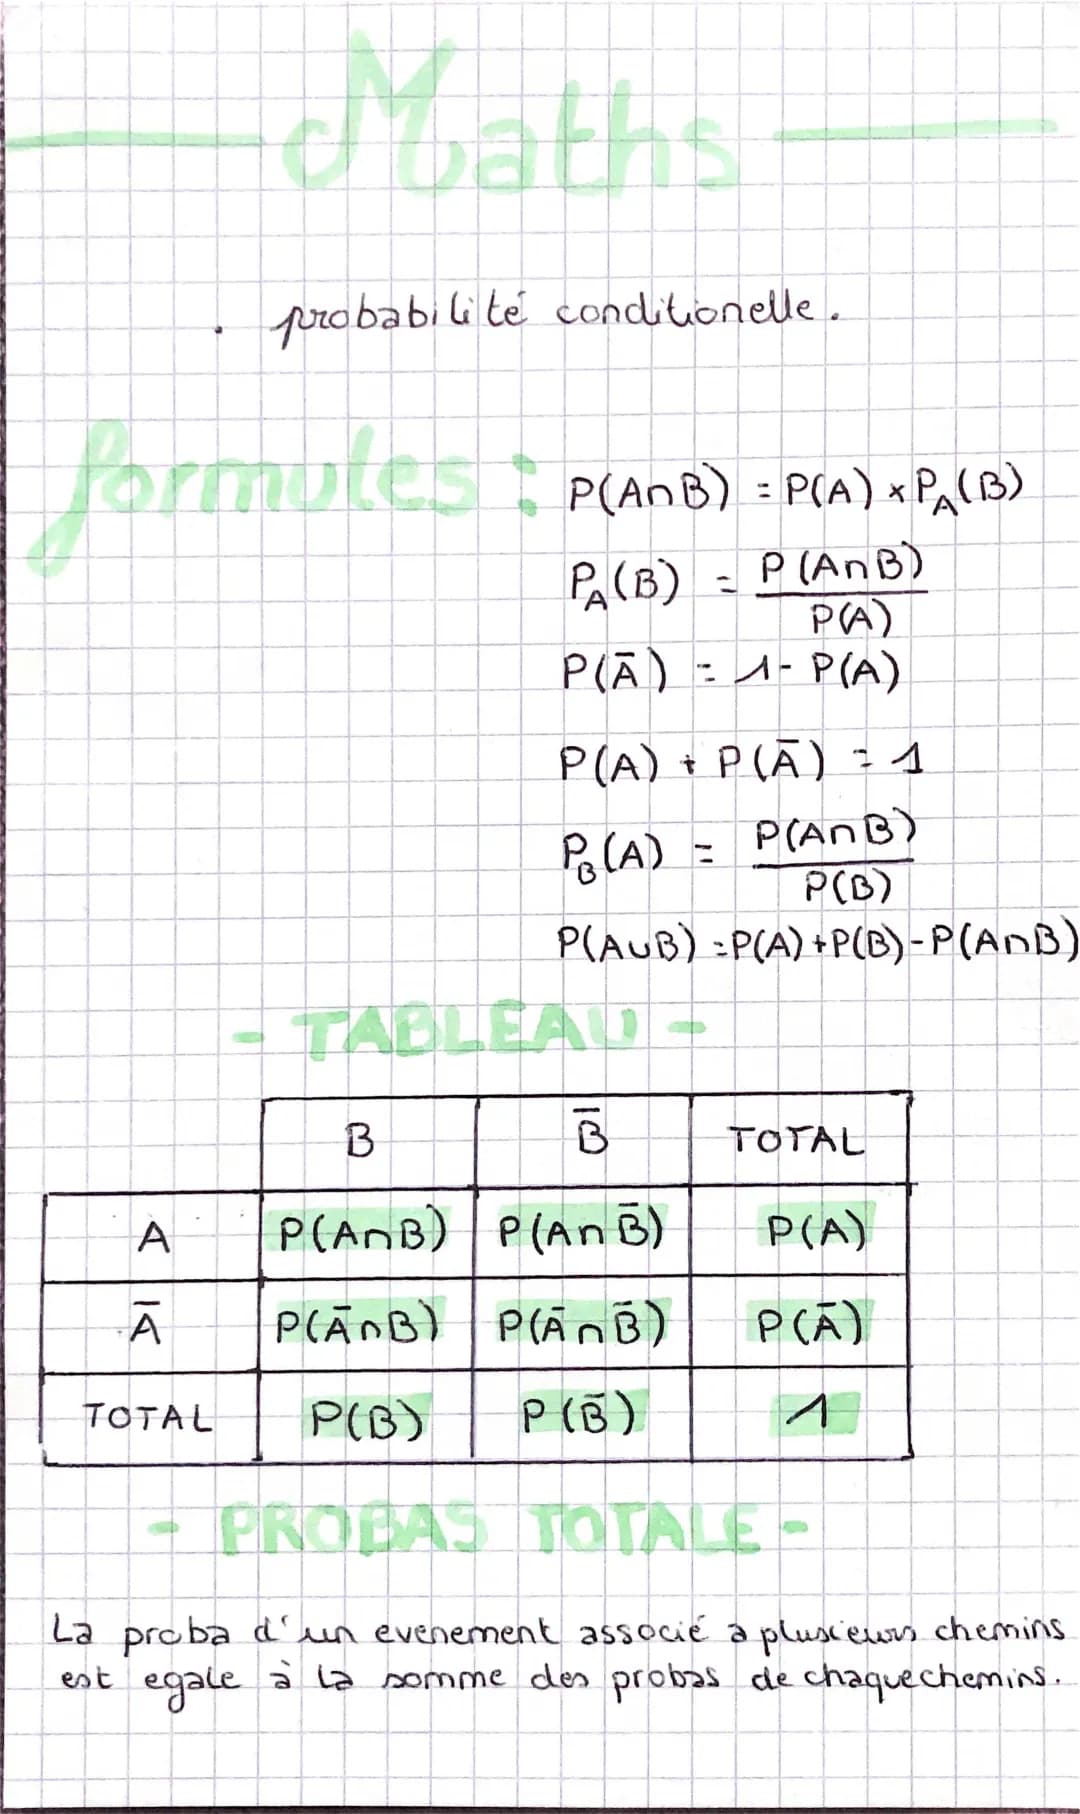 Maths
. probabilité conditionelle.
formules :
P(A∩B) = P(A) × P_A(B)
P_A(B) = P(A∩B) / P(A)
P(Ā) = 1 - P(A)
P(A) + P(Ā) = 1
P_B(A) = P(A∩B) / P(B)
P(A∪B) = P(A) + P(B) - P(A∩B)
- TABLEAU -
B B̄ TOTAL
A P(A∩B) P(A∩B̄) P(A)
Ā P(Ā∩B) P(Ā∩B̄) P(Ā)
TOTAL P(B) P(B̄) 1
- PROBAS TOTALE -
La proba d'un evenement associé a plusieurs chemins
est egale à la somme des probas de chaque chemins.